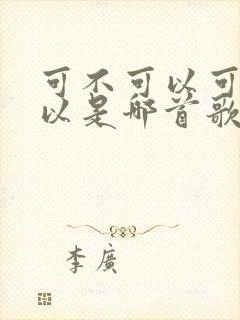 可不可以可
以是哪首歌
李廣